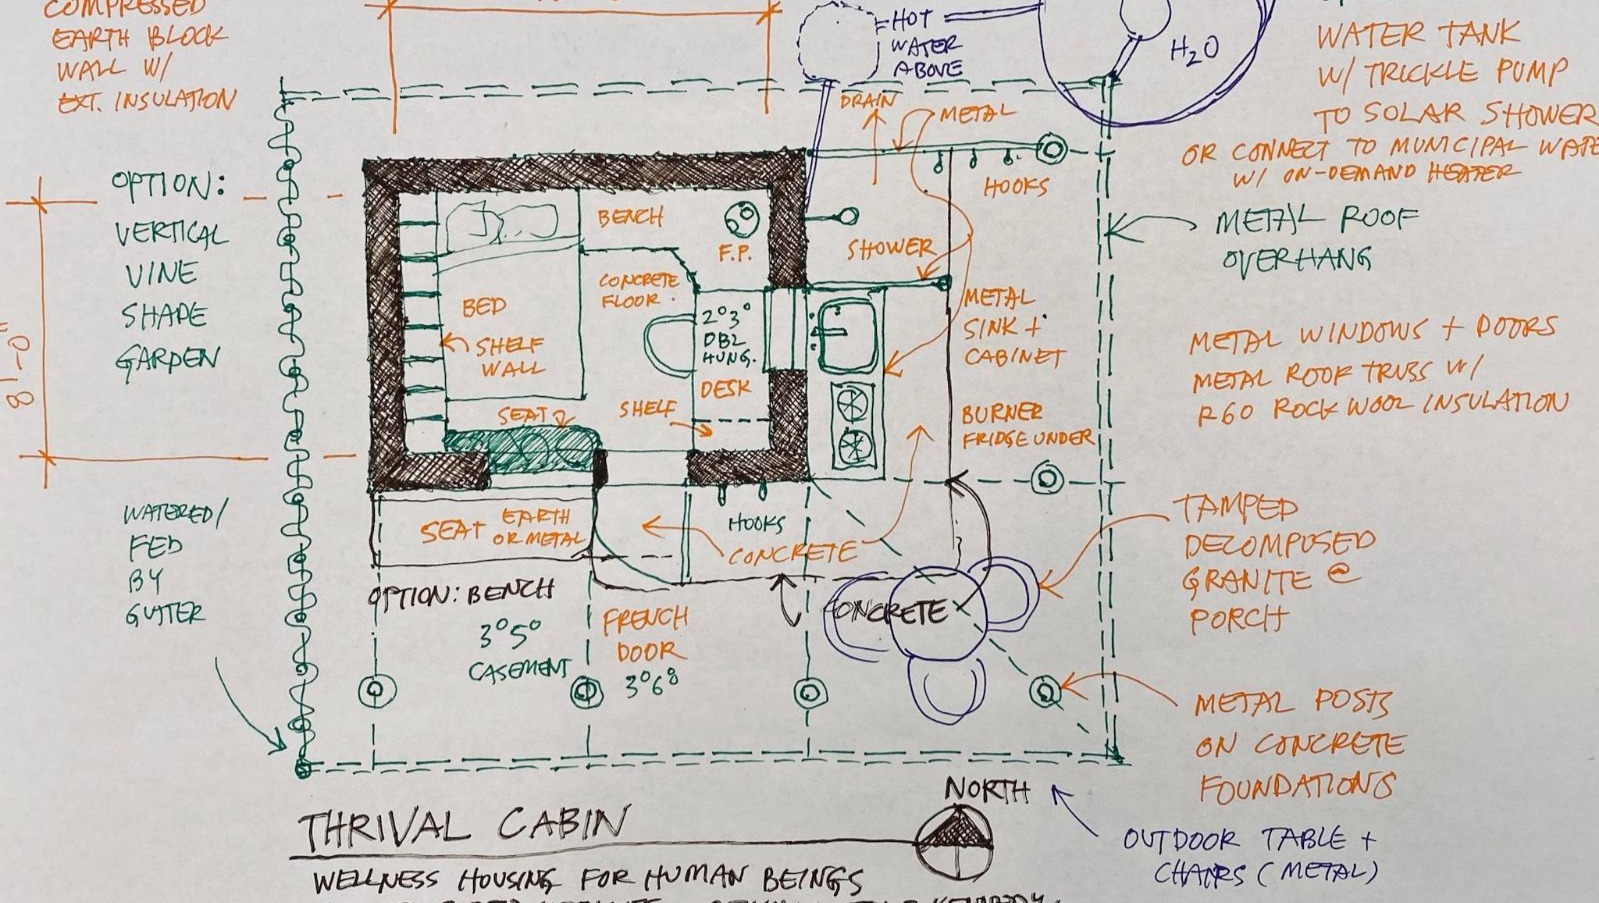 COMPRESSED
EARTH BLOCK
WALL W/
EXT. INSULATION
HOT
WATER
ABOVE
H2O
WATER TANK
W/ TRICKLE PUMP
TO SOLAR SHOWER
OR CONNECT TO MUNICIPAL WATE
W/ ON-DEMAND HEATER
DRAIN
METAL
HOOKS
OPTION:
VERTICAL
VINE
SHAPE
GARDEN
8'-0"
BENCH
F.P.
SHOWER
METAL ROOF
OVERHANG
CONCRETE
FLOOR.
BED
SHELF
WALL
2°3°
DBL
HUNG.
DESK
SHELF
SEAT
METAL
SINK +
CABINET
METAL WINDOWS + DOORS
METAL ROOF TRUSS W/
R60 ROCK WOOL INSULATION
BURNER
FRIDGE UNDER
WATERED/
FED
BY
GUTTER
SEAT EARTH
OR METAL
HOOKS
CONCRETE
TAMPED
DECOMPOSED
GRANITE @
PORCH
OPTION: BENCH
3°5°
CASEMENT
FRENCH
DOOR
3°6⁸
CONCRETE
METAL POSTS
ON CONCRETE
FOUNDATIONS
NORTH
THRIVAL CABIN
OUTDOOR TABLE +
CHAIRS (METAL)
WELLNESS HOUSING FOR HUMAN BEINGS